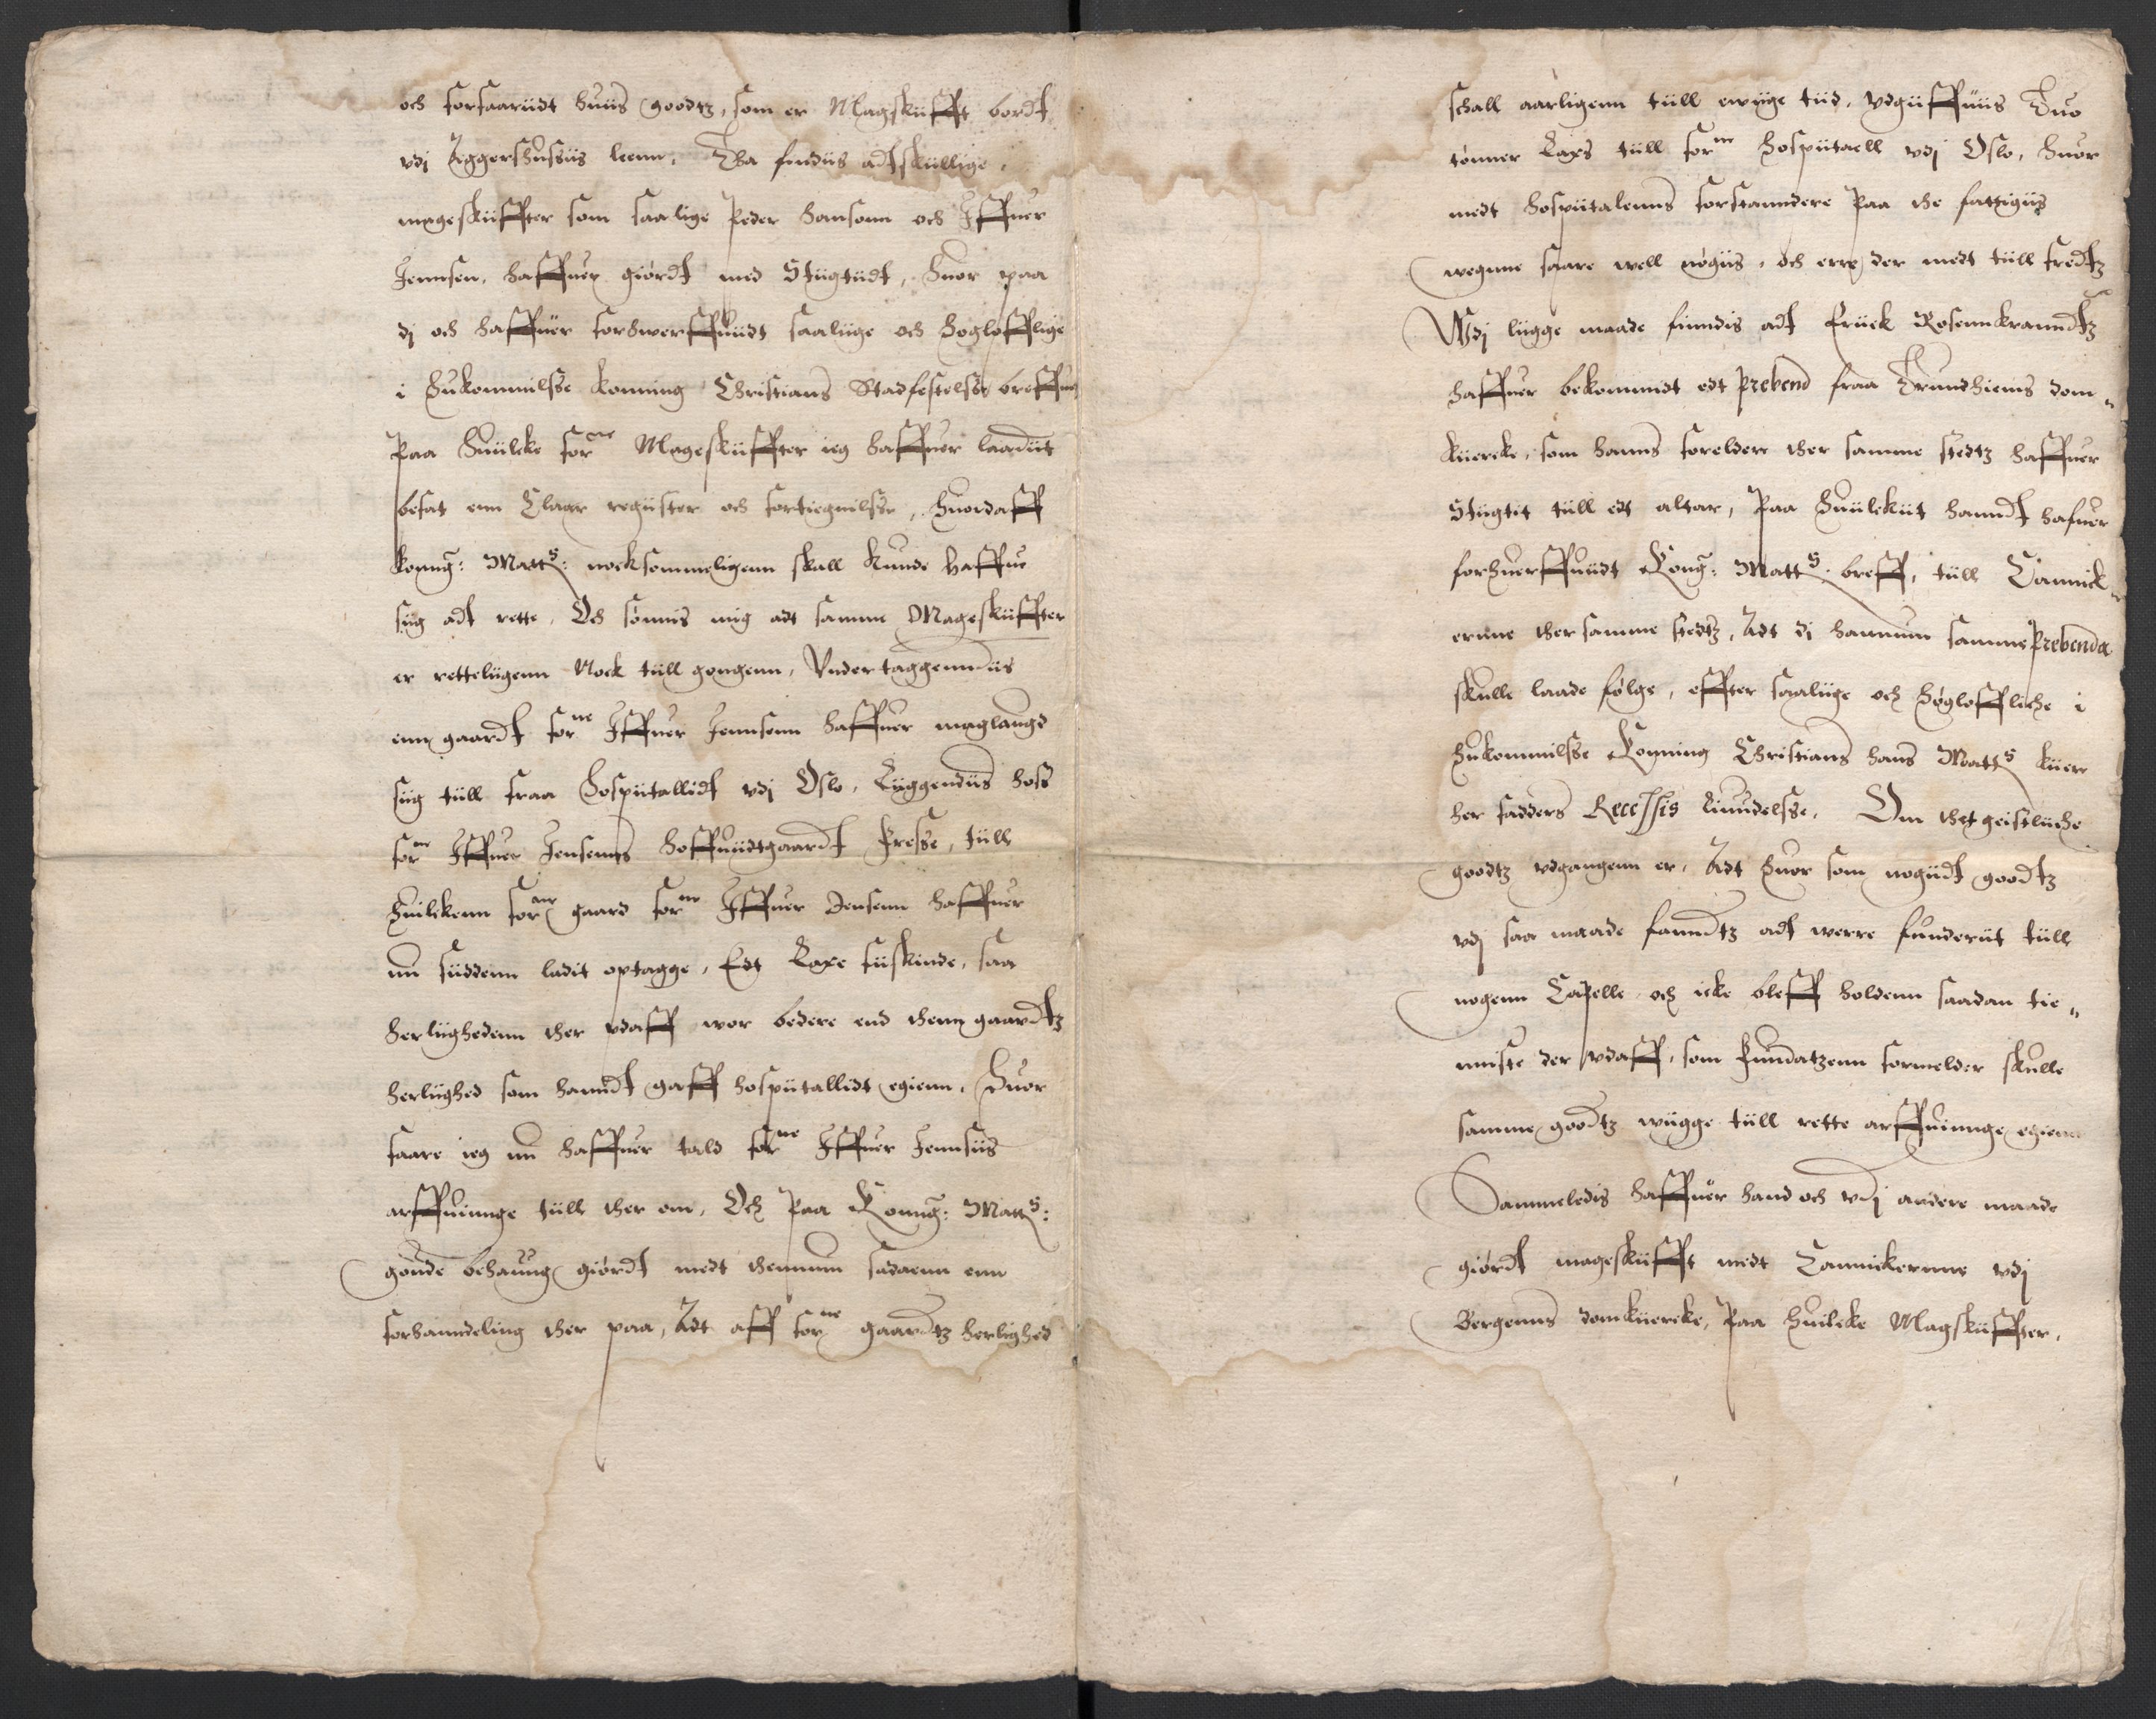 och forfaarüdt huüs goodtz, som er Magsküfft bordt
vdj Aggershusüs leenn, Tha findüs adtsküllige,
magesküffter som saalige Peder hansonn och Iffuer
Jennsen, haffuer giørdt med Stügtüdt, huor paa
dj och haffuer forhwerffuüdt saalüge och høgloffflige
i hukommilsse konning Christians Stadfestelsse breffue
Paa huülcke forne Magesküffter ieg haffuer laadüt
besat enn Claar regüster och fortiegnilsse, huordaff
konng: Matts: nocksommeligenn skall kunde haffue
süg adt rette, Och sønnis mig adt samme Magesküffter
er rettelügenn Nock tüll gongenn, Vndertaggenndüs
enn gaardt forne Iffuer Jennsenn haffuer maglaugd
süg tüll fraa Hospütallidt vdj Oslo, Lüggendüs hoss
forne Iffuer Jensenns hoffuüdtgaardt Fresse, tüll
huilckenn forne gaard forne Iffuer Jensenn haffuer
nu süddenn ladit optagge, Edt Laxe füskinde, saa
herlüghedenn ther vdaff wor bedere end thenn gaardtz
herlüghed som hanndt gaff hospütallidt egienn, Huor
faare ieg nu haffuer tald forne Iffuer Jennsüs
arffuinnge tüll ther om, Och paa Konng: Matts:
gonde behaung giørdt medt thennum sadaenn enn
forhanndeling ther paa, Adt aff forne gaardtz herlighed
schall aarligenn tüll ewüge tüd, vdgüffuüs Tuo
tønner Laxs tüll forne hospütaell vdj Oslo, huor
medt hospütalenns forstanndere paa the fattigüs
wegnne faare well nøgüs, och erre der medt tüll fredtz
Wdj lügge maade finndis adt Erück Rosennkranndtz
haffuer bekommidt edt prebend fraa Trundhiems dom„
küercke, som hanns forelder ther samme stedtz haffuer
Stügtit tüll edt altar, Paa huülcküt hanndt hafuer
forhuerffuüdt Kong: Matts: breff, tüll Cannick„
ernne ther samme stedtz, Adt di hannum samme Prebenda
skulle laade følge, effter saalüge och høgloffliche i
hukommilsse Konning Christians hans Matts küer
her fadders Recessis liuudelsse, Om thet geistlüche
goodtz vdgangenn er, Adt huor som nogüdt goodtz
vdj saa maade fanndtz adt werre funderüt tüll
nogenn Capelle och icke bleff holdenn saadan tie„
nniste der vdaff, som Fundatzenn formelder skulle
samme goodtz wügge tüll rette arffuinnge egienn
Sammeledis haffuer hand och vdj andere maade
giørdt magesküfft medt Cannickernne vdj
Bergenns domküercke, Paa huilcke Magsküffter,